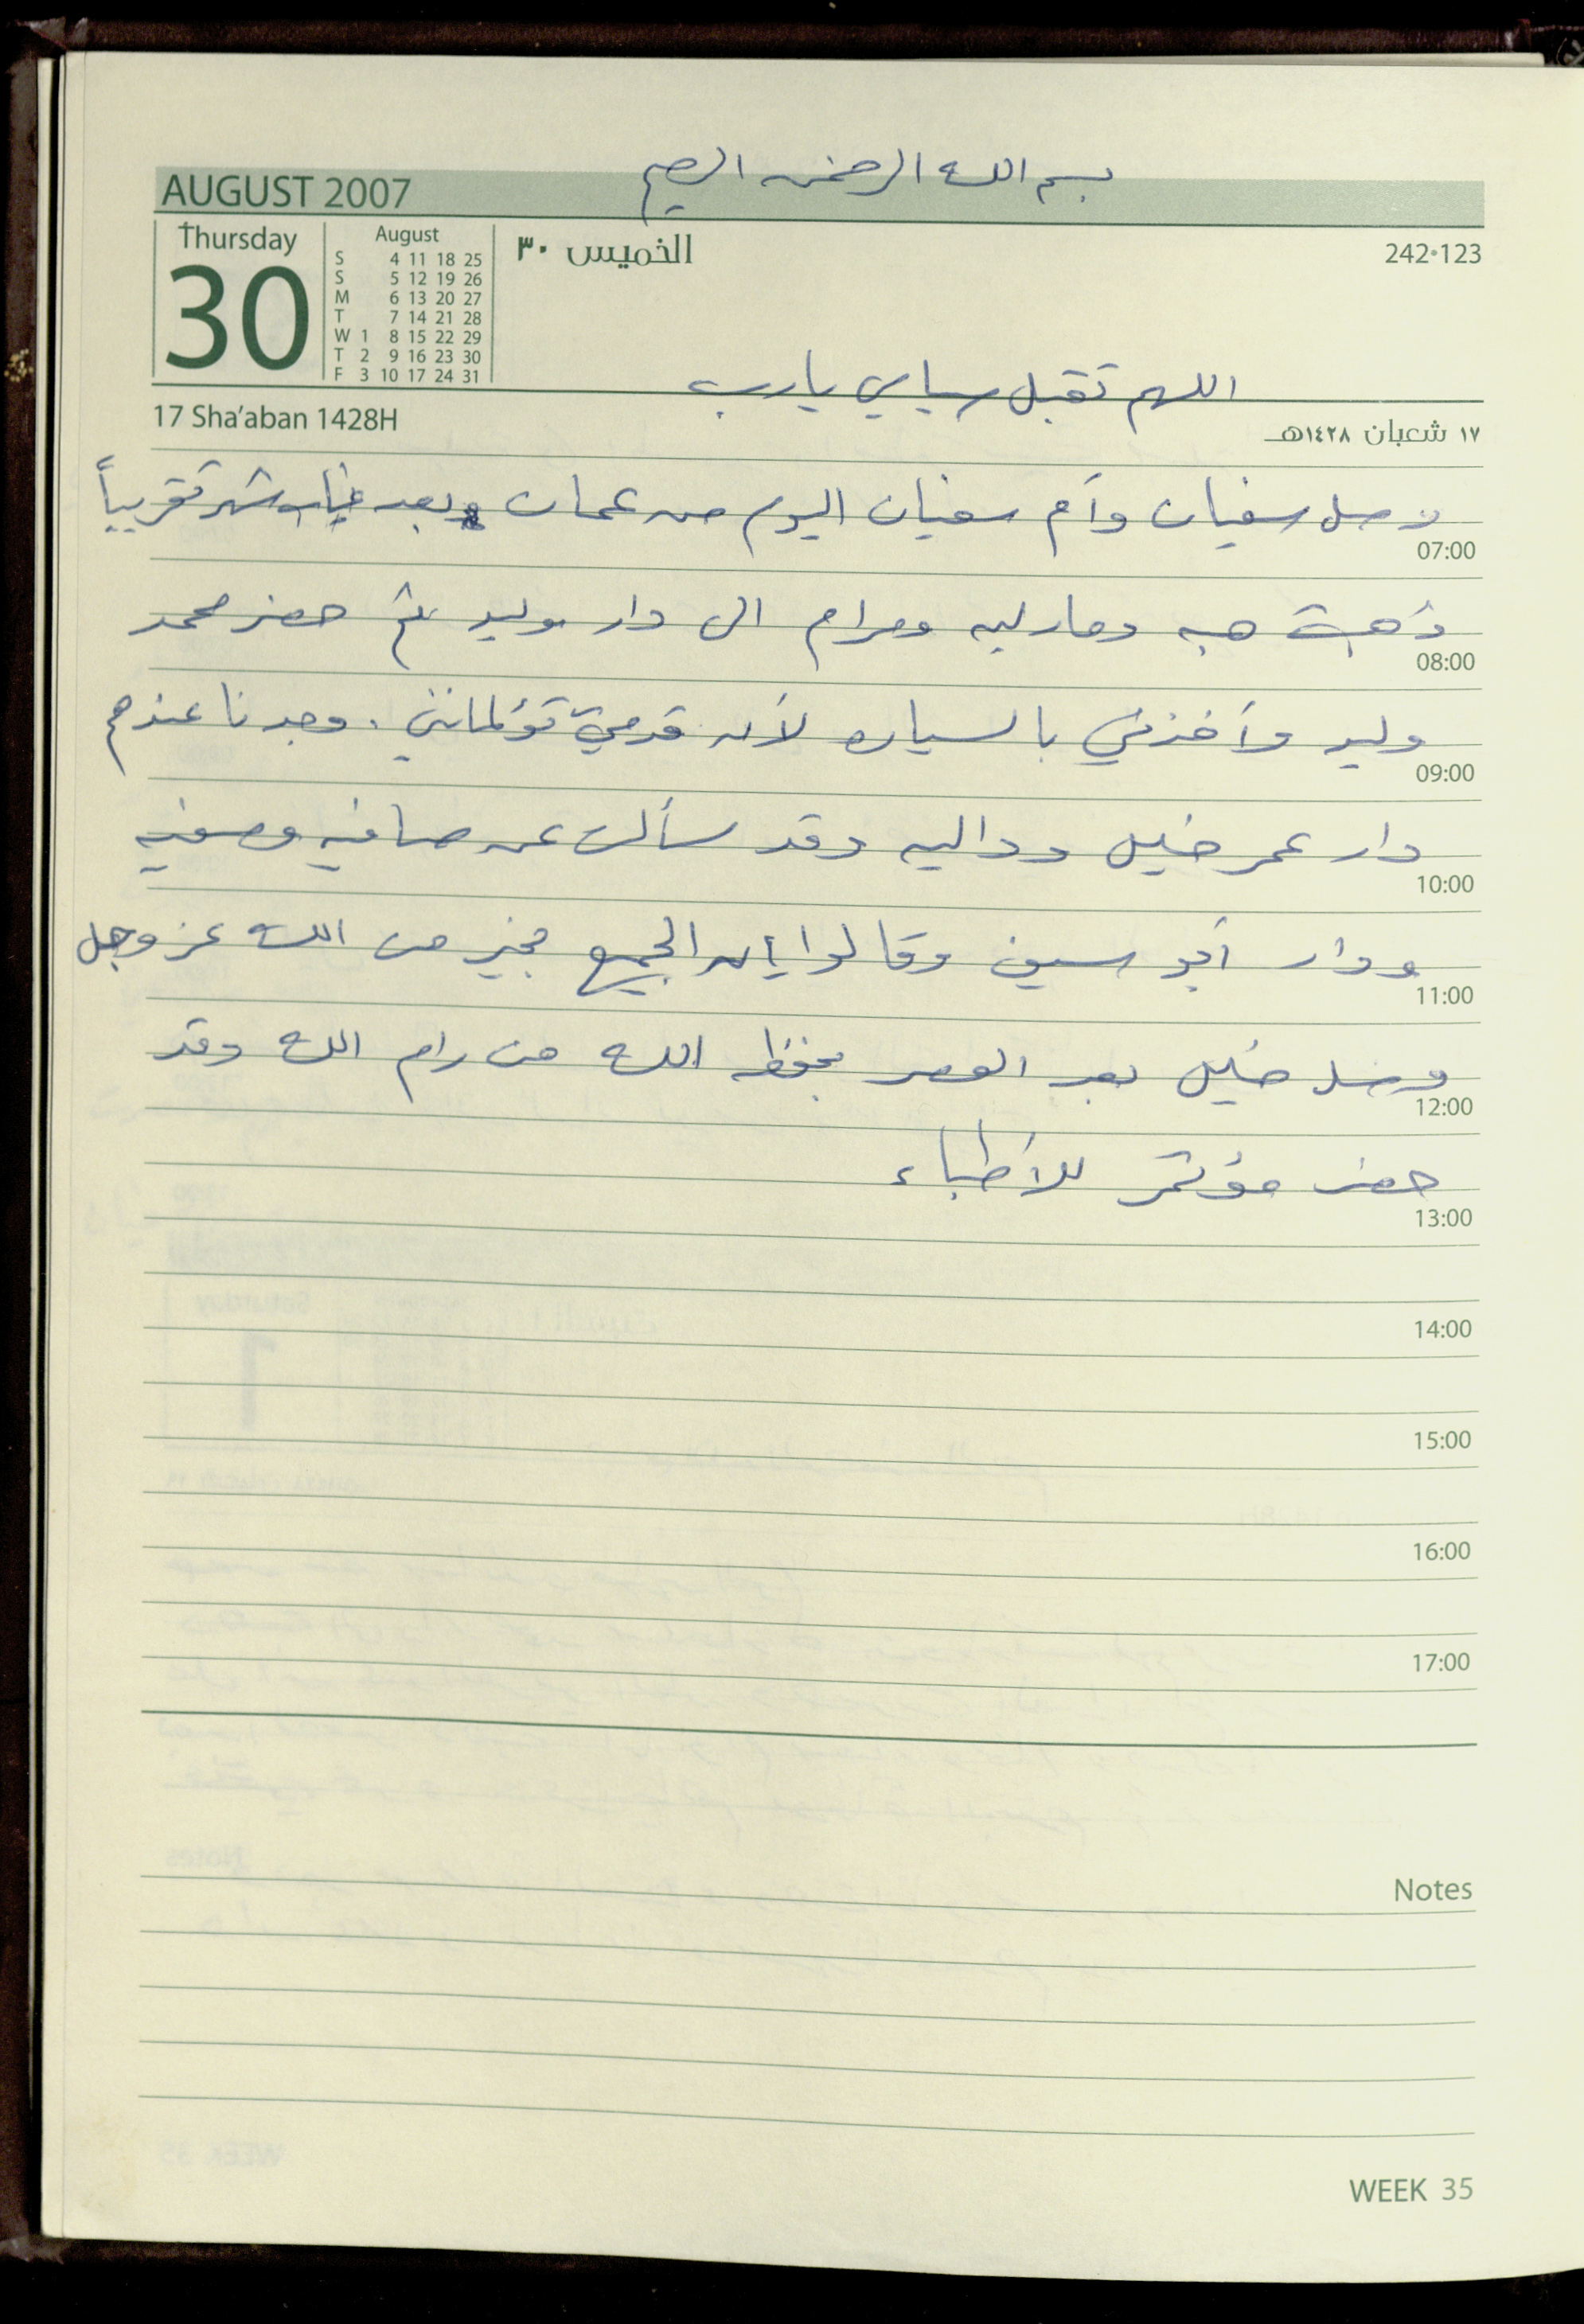 بسم الله الرحمن الرحيم
AUGUST 2007
Thursday
30
August
S 4 11 18 25
S 5 12 19 26
M 6 13 20 27
T 7 14 21 28
W 1 8 15 22 29
T 2 9 16 23 30
F 3 10 17 24 31
الخميس ٣٠
242•123
اللهم تقبل صيامي يا رب
17 Sha'aban 1428H
١٧ شعبان ١٤٢٨هـ
وصل سفيان وأم سفيان اليوم من عمان وبعد غياب شهر تقريباً
07:00
ذهبت هبه ومارليه ومرام الى دار وليد ثم حضر محمد
08:00
وليد وأخذني بالسياره لأن قدميّ تؤلمانني . وجدنا عندهم
09:00
دار عمر خليل وداليه وقد سألت عن صافيه وصفيه
10:00
ودار أبو سيف وقالوا بأن الجميع بخير من الله عز وجل
11:00
وصل خليل بعد العصر بحفظ الله من رام الله وقد
12:00
حضر مؤتمر للأطباء
13:00
14:00
15:00
16:00
17:00
Notes
WEEK 35